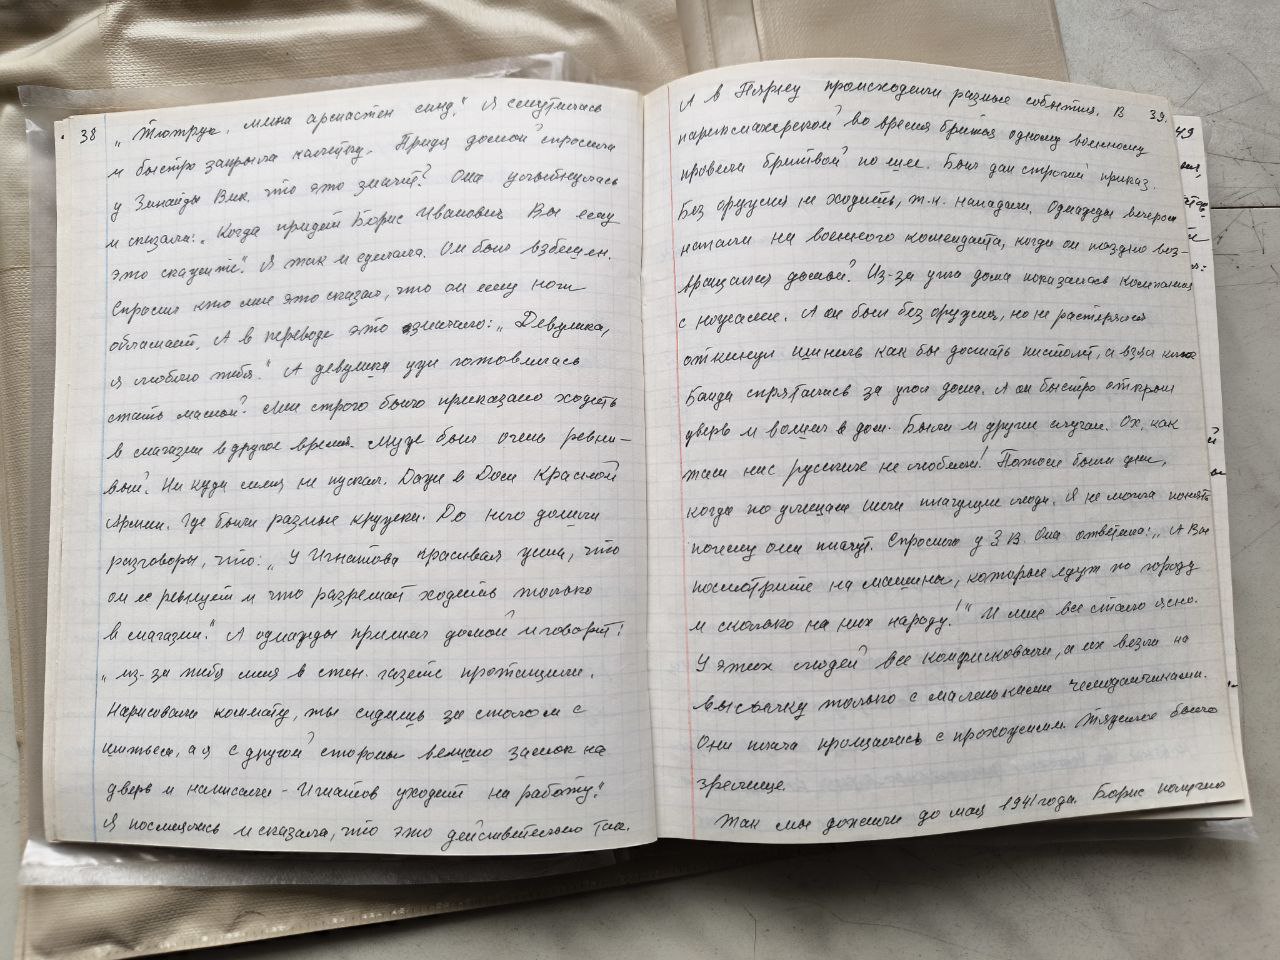 38
„Тютрук, мина армастен синд." Я смутилась
и быстро закрыла калитку. Придя домой спросила
у Зинаиды Вик. что это значит? Она улыбнулась
и сказала: „Когда придёт Борис Иванович Вы ему
это скажите". Я так и сделала. Он был взбешен.
Спросил кто мне это сказал, что он ему ноги
обломает. А в переводе это означало: „Девушка,
я люблю тебя." А девушка уже готовилась
стать мамой. Мне строго было приказано ходить
в магазин в другое время. Муж был очень ревни-
вый. Ни куда меня не пускал. Даже в Дом Красной
Армии. Где были разные кружки. До него дошли
разговоры, что: „У Игнатова красивая жена, что
он её ревнует и что разрешает ходить только
в магазин." А однажды пришел домой и говорит:
„из-за тебя меня в стен. газете протащили.
Нарисовали комнату, ты сидишь за столом с
шитьем, а я с другой стороны вешаю замок на
дверь и написали - Игнатов уходит на работу."
Я посмеялась и сказала, что это действительно так.
39.
А в Пярну происходили разные события. В
парикмахерской во время бритья одному военному
провели бритвой по шее. Был дан строгий приказ.
Без оружия не ходить, т.к. нападали. Однажды вечером
напали на военного коменданта, когда он поздно воз-
вращался домой. Из-за угла дома показалась компания
с ножами. А он был без оружия, но не растерялся
откинул шинель как бы достать пистолет, а взял
Банда спряталась за угол дома. А он быстро открыл
дверь и вошел в дом. Были и другие случаи. Ох, как
там нас русских не любили! Потом были дни,
когда по улицам шли плачущие люди. Я не могла понять
почему они плачут. Спросила у З.В. Она ответила: „А Вы
посмотрите на машины, которые едут по городу
и сколько на них народу!" И мне все стало ясно.
У этих людей все конфисковали, а их везли на
высылку только с маленькими чемоданчиками.
Они плача прощались с прохожими. Тяжелое было
зрелище.
Так мы дожили до мая 1941 года. Борис получил
49